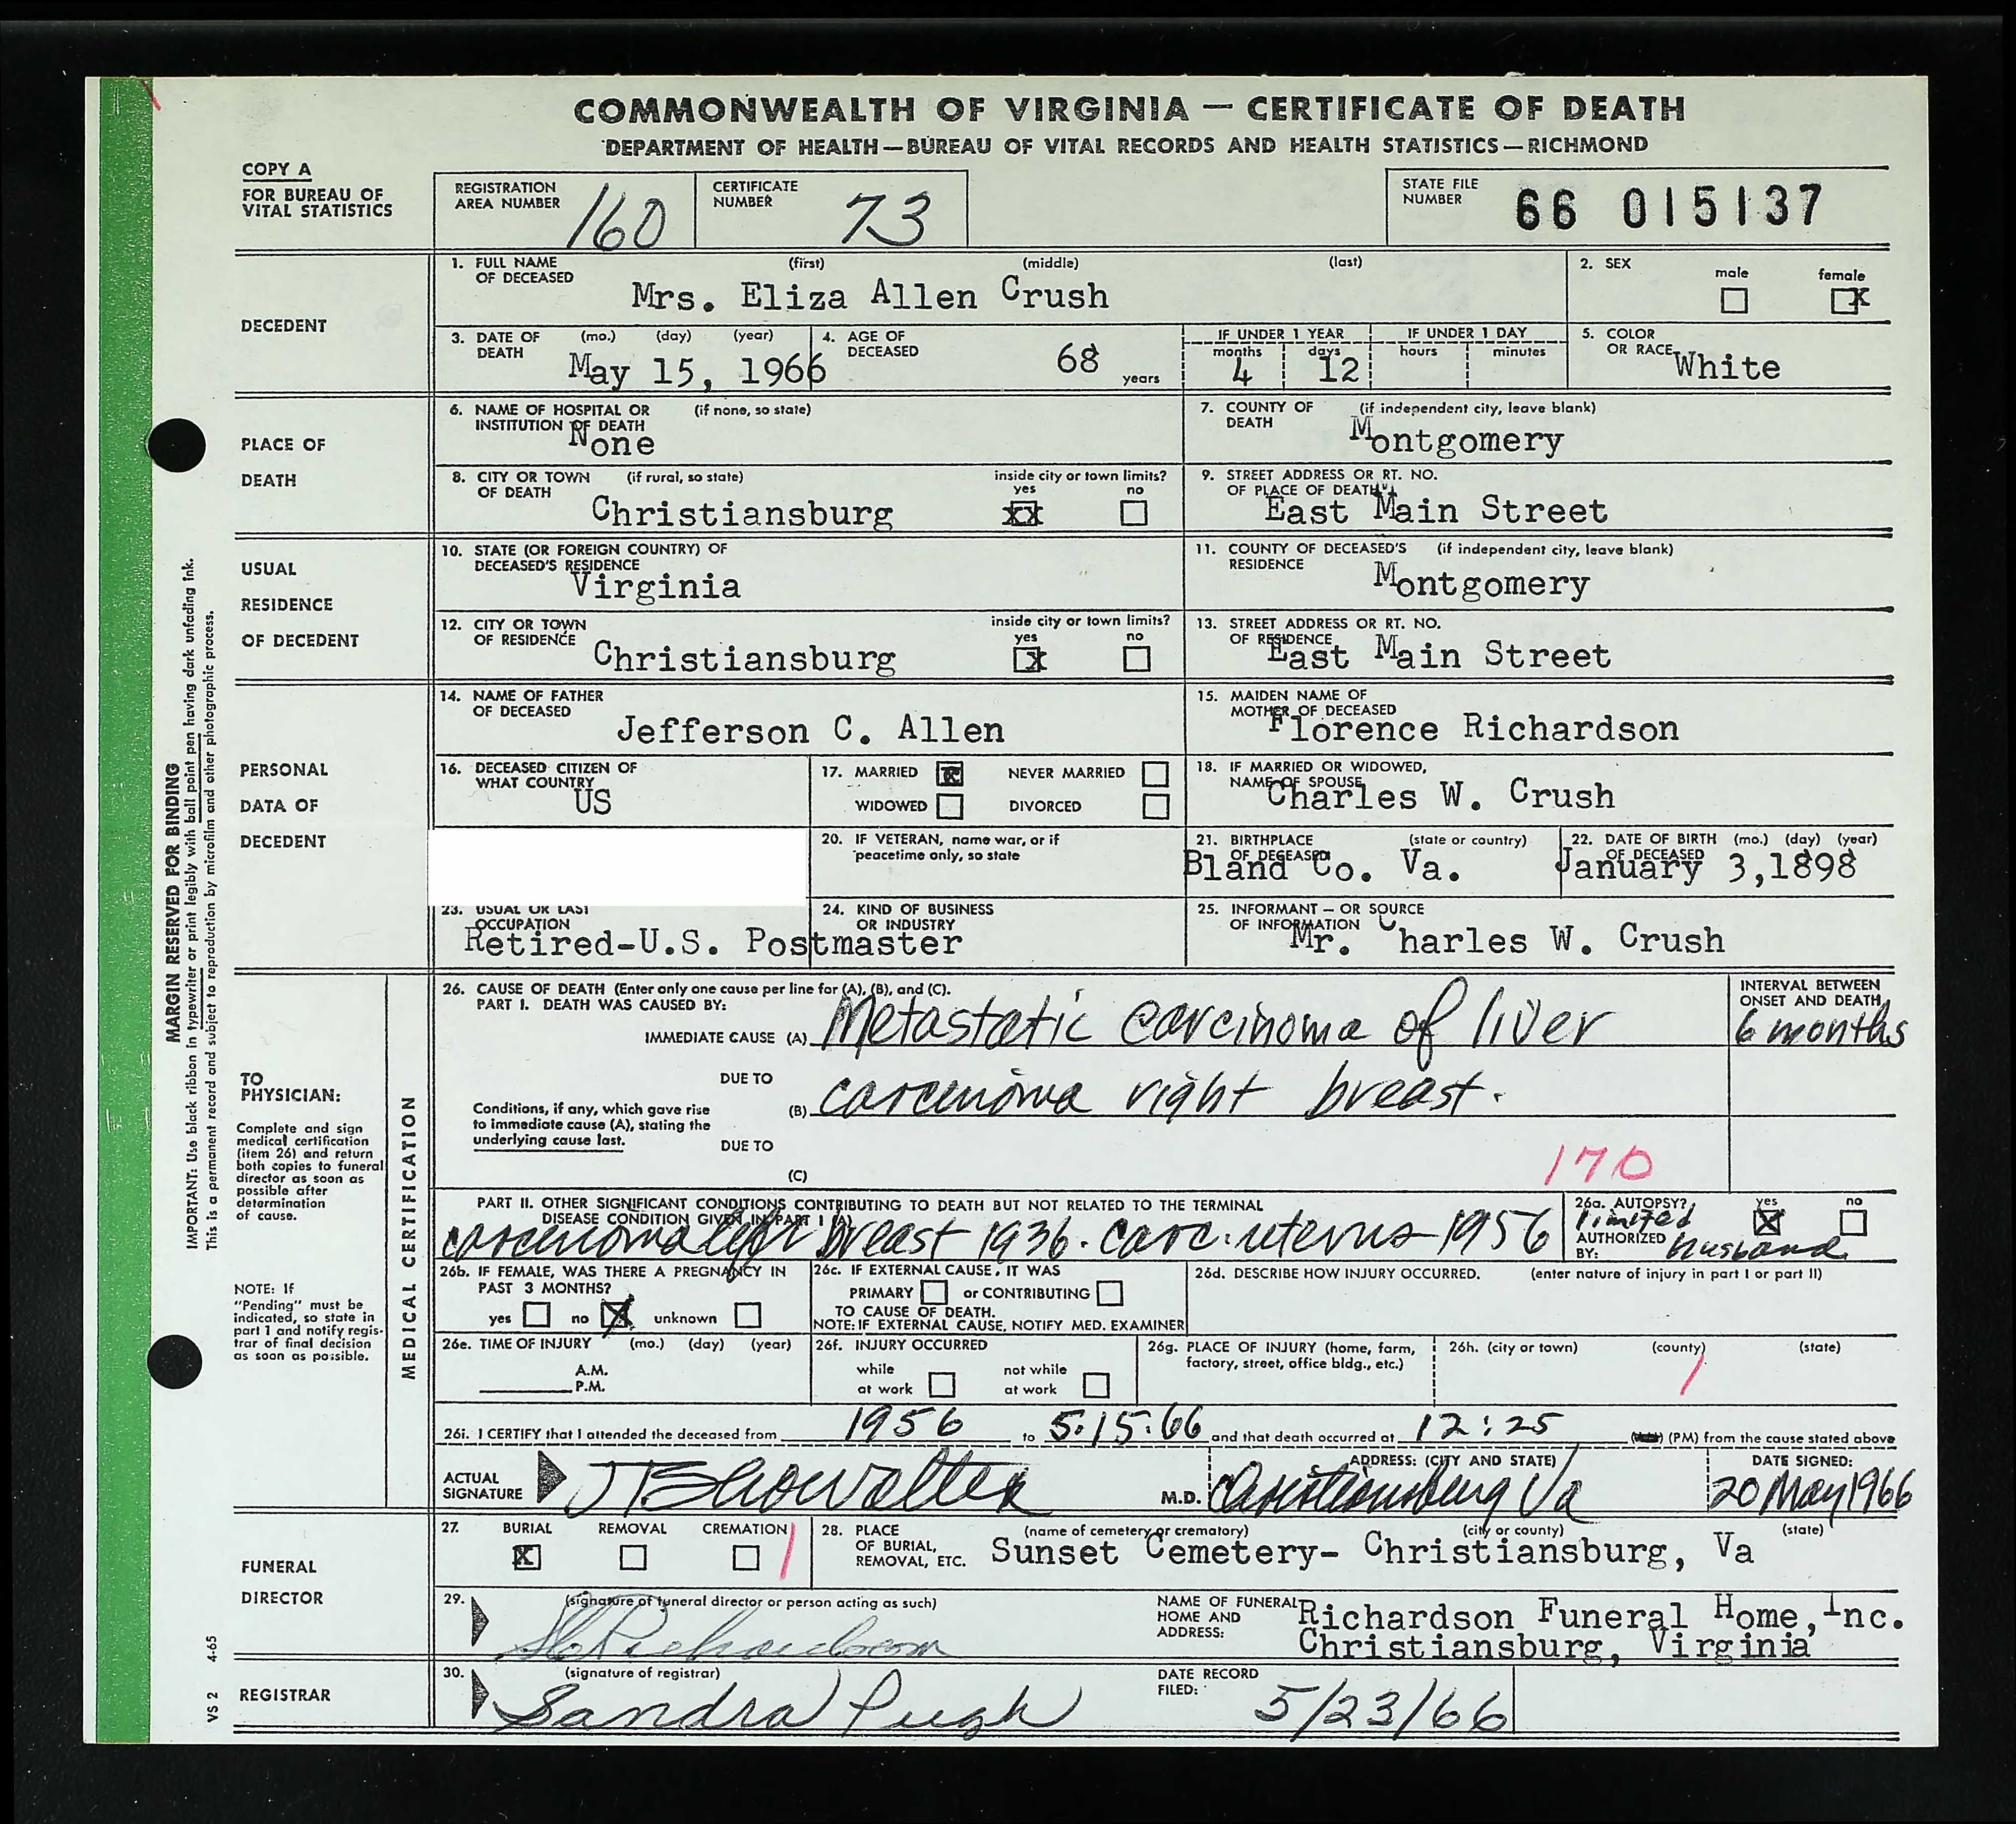 COMMONWEALTH OF VIRGINIA — CERTIFICATE OF DEATH
DEPARTMENT OF HEALTH—BUREAU OF VITAL RECORDS AND HEALTH STATISTICS—RICHMOND
COPY A
FOR BUREAU OF
VITAL STATISTICS
REGISTRATION
AREA NUMBER 160
CERTIFICATE
NUMBER 73
STATE FILE
NUMBER 66 015137
DECEDENT
1. FULL NAME OF DECEASED (first) (middle) (last)
Mrs. Eliza Allen Crush
2. SEX male female X
3. DATE OF DEATH (mo.) (day) (year)
May 15, 1966
4. AGE OF DECEASED 68 years
IF UNDER 1 YEAR months 4 days 12
IF UNDER 1 DAY hours minutes
5. COLOR OR RACE White
PLACE OF
DEATH
6. NAME OF HOSPITAL OR INSTITUTION OF DEATH (if none, so state)
None
7. COUNTY OF DEATH (if independent city, leave blank)
Montgomery
8. CITY OR TOWN OF DEATH (if rural, so state)
Christiansburg
inside city or town limits? yes XX no
9. STREET ADDRESS OR RT. NO. OF PLACE OF DEATH
East Main Street
USUAL
RESIDENCE
OF DECEDENT
10. STATE (OR FOREIGN COUNTRY) OF DECEASED'S RESIDENCE
Virginia
11. COUNTY OF DECEASED'S RESIDENCE (if independent city, leave blank)
Montgomery
12. CITY OR TOWN OF RESIDENCE
Christiansburg
inside city or town limits? yes X no
13. STREET ADDRESS OR RT. NO. OF RESIDENCE
East Main Street
PERSONAL
DATA OF
DECEDENT
14. NAME OF FATHER OF DECEASED
Jefferson C. Allen
15. MAIDEN NAME OF MOTHER OF DECEASED
Florence Richardson
16. DECEASED CITIZEN OF WHAT COUNTRY
US
17. MARRIED NEVER MARRIED
WIDOWED DIVORCED
18. IF MARRIED OR WIDOWED, NAME OF SPOUSE
Charles W. Crush
20. IF VETERAN, name war, or if peacetime only, so state
21. BIRTHPLACE OF DECEASED (state or country)
Bland Co. Va.
22. DATE OF BIRTH OF DECEASED (mo.) (day) (year)
January 3,1898
23. USUAL OR LAST OCCUPATION
24. KIND OF BUSINESS OR INDUSTRY
Retired-U.S. Postmaster
25. INFORMANT — OR SOURCE OF INFORMATION
Mr. Charles W. Crush
MARGIN RESERVED FOR BINDING
IMPORTANT: Use black ribbon in typewriter or print legibly with ball point pen having dark unfading ink.
This is a permanent record and subject to reproduction by microfilm and other photographic process.
TO
PHYSICIAN:
Complete and sign
medical certification
(item 26) and return
both copies to funeral
director as soon as
possible after
determination
of cause.
NOTE: If
"Pending" must be
indicated, so state in
part 1 and notify regis-
trar of final decision
as soon as possible.
MEDICAL CERTIFICATION
26. CAUSE OF DEATH (Enter only one cause per line for (A), (B), and (C).
PART I. DEATH WAS CAUSED BY:
INTERVAL BETWEEN
ONSET AND DEATH
IMMEDIATE CAUSE (A) Metastatic carcinoma of liver 6 months
DUE TO
Conditions, if any, which gave rise
to immediate cause (A), stating the
underlying cause last.
(B) carcenoma right breast.
DUE TO
(C)
170
PART II. OTHER SIGNIFICANT CONDITIONS CONTRIBUTING TO DEATH BUT NOT RELATED TO THE TERMINAL
DISEASE CONDITION GIVEN IN PART I (A)
carcenoma left breast 1936. carc. uterus 1956
26a. AUTOPSY? yes X no
limited
AUTHORIZED BY: husband
26b. IF FEMALE, WAS THERE A PREGNANCY IN
PAST 3 MONTHS?
yes no X unknown
26c. IF EXTERNAL CAUSE, IT WAS
PRIMARY or CONTRIBUTING
TO CAUSE OF DEATH.
NOTE: IF EXTERNAL CAUSE, NOTIFY MED. EXAMINER
26d. DESCRIBE HOW INJURY OCCURRED. (enter nature of injury in part I or part II)
26e. TIME OF INJURY (mo.) (day) (year)
A.M.
P.M.
26f. INJURY OCCURRED
while at work
not while at work
26g. PLACE OF INJURY (home, farm,
factory, street, office bldg., etc.)
26h. (city or town) (county) (state)
26i. I CERTIFY that I attended the deceased from 1956 to 5.15.66 and that death occurred at 12:25 (PM) from the cause stated above
ACTUAL
SIGNATURE JTShowalter M.D.
ADDRESS: (CITY AND STATE)
Christiansburg Va
DATE SIGNED:
20 May 1966
FUNERAL
DIRECTOR
27. BURIAL REMOVAL CREMATION
X
28. PLACE OF BURIAL, REMOVAL, ETC. (name of cemetery or crematory) (city or county) (state)
Sunset Cemetery- Christiansburg, Va
29. (signature of funeral director or person acting as such)
Richardson
NAME OF FUNERAL
HOME AND
ADDRESS:
Richardson Funeral Home, Inc.
Christiansburg, Virginia
REGISTRAR
30. (signature of registrar)
Sandra Pugh
DATE RECORD
FILED: 5/23/66
VS 2 4-65